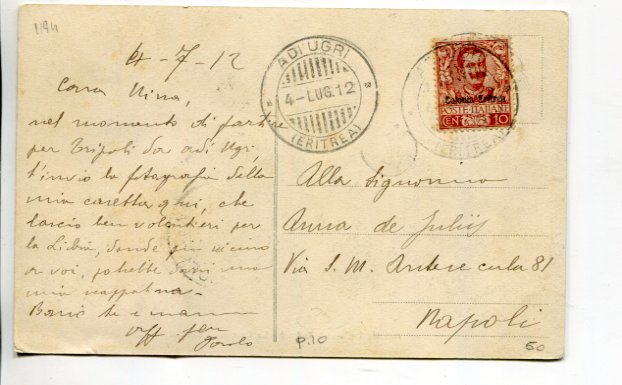 1911
4-7-12
Cara Nina,
nel momento di partire
per Tripoli da adi Ugri,
t'invio la fotografia della
mia casetta qui, che
lascio ben volentieri per
la Libia, donde più vicino
a voi, potrebbe darsi una
mia scappatina -
Bacio te e mamma
aff
Paolo
ADI UGRI
4-LUG.12
(ERITREA)
Colonia Eritrea
POSTE ITALIANE
CENT 10
(ERITREA)
Alla Signorina
Anna de Juliis
Via S. M. Antesecula 81
Napoli
p.10
50